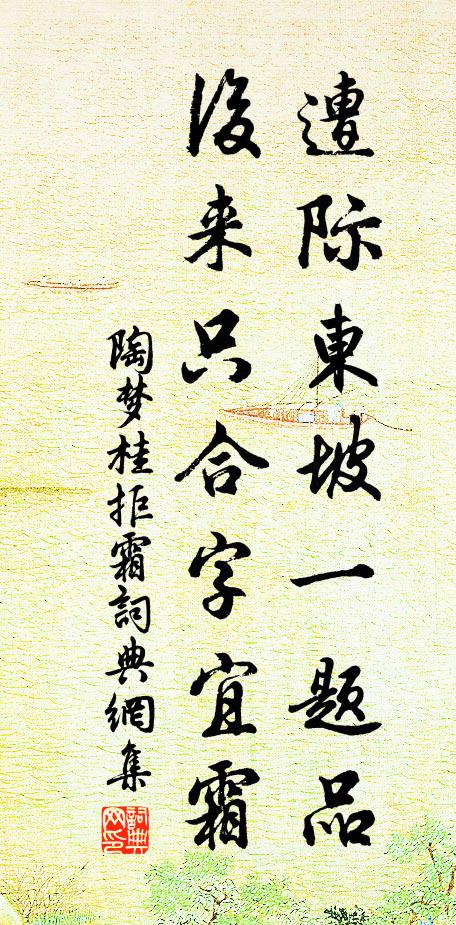 遭际東坡一题品
後来只合字宜霜
陶梦桂拒霜詞典網集
詞典網印